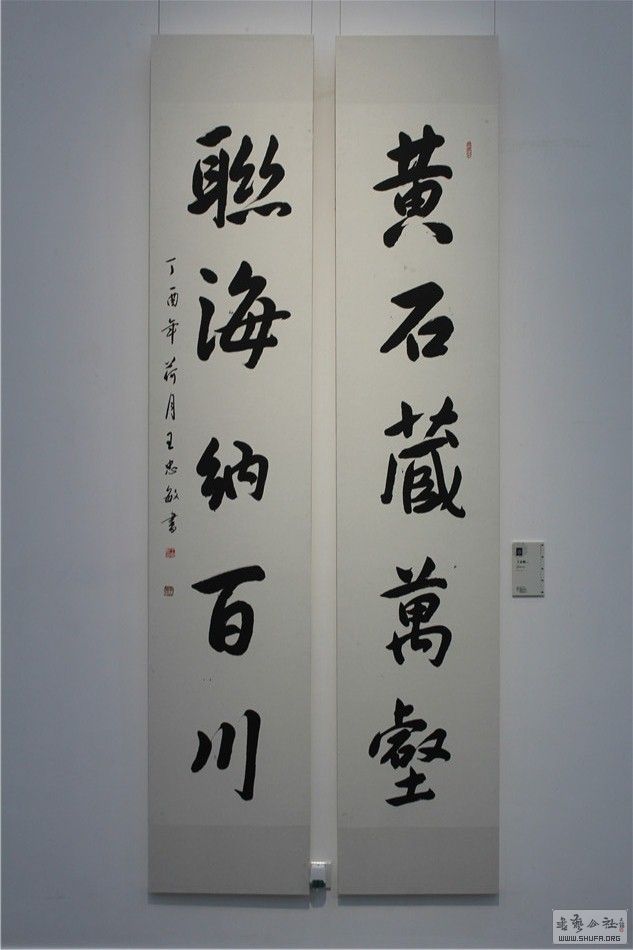 黄石藏萬壑
聯海納百川
丁酉年荷月王忠敏書
WWW.SHUFA.ORG